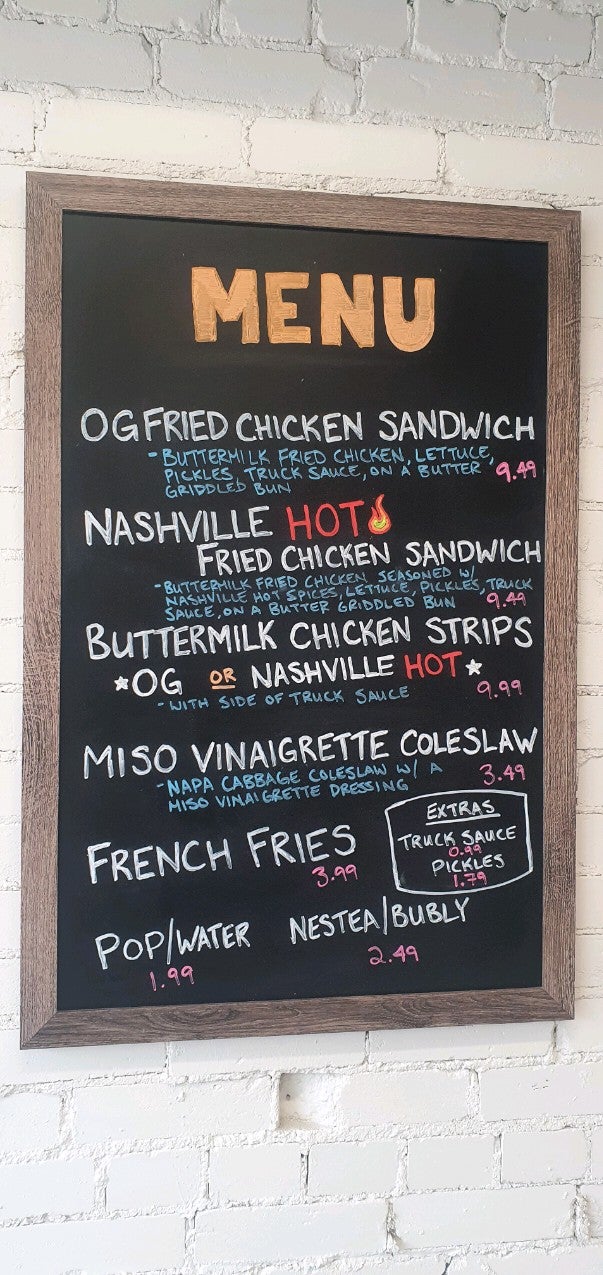 MENU
OG FRIED CHICKEN SANDWICH
- BUTTERMILK FRIED CHICKEN, LETTUCE,
PICKLES, TRUCK SAUCE, ON A BUTTER 9.49
GRIDDLED BUN
NASHVILLE HOT
FRIED CHICKEN SANDWICH
- BUTTERMILK FRIED CHICKEN SEASONED W/
NASHVILLE HOT SPICES, LETTUCE, PICKLES, TRUCK
SAUCE, ON A BUTTER GRIDDLED BUN 9.49
BUTTERMILK CHICKEN STRIPS
*OG OR NASHVILLE HOT*
- WITH SIDE OF TRUCK SAUCE 9.99
MISO VINAIGRETTE COLESLAW
- NAPA CABBAGE COLESLAW W/ A 3.49
MISO VINAIGRETTE DRESSING
FRENCH FRIES
3.99
EXTRAS
TRUCK SAUCE
0.99
PICKLES
1.79
POP/WATER NESTEA/BUBLY
1.99 2.49